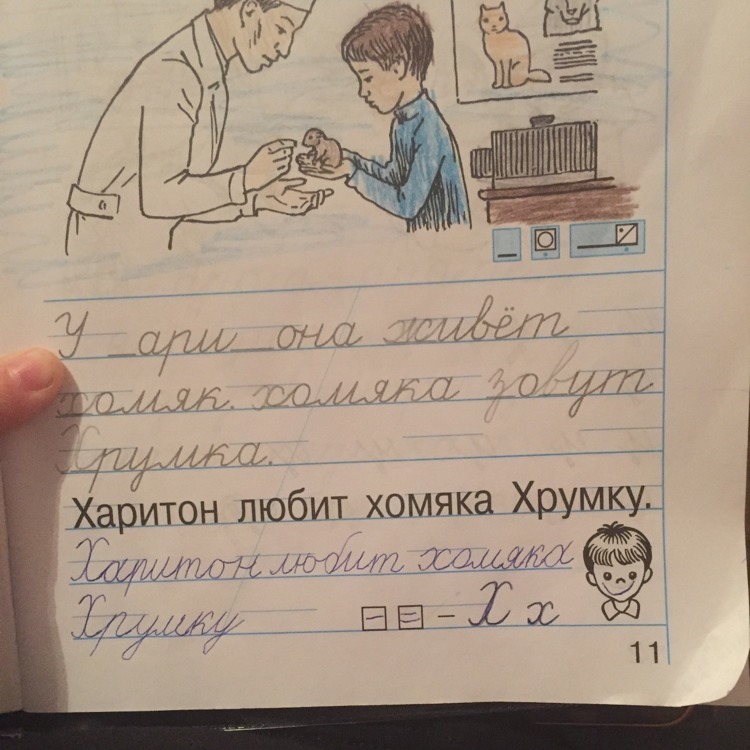 У _ари_она живёт
хомяк. хомяка зовут
Хрумка.
Харитон любит хомяка Хрумку.
Харитон любит хомяка
Хрумку
– Х х
11